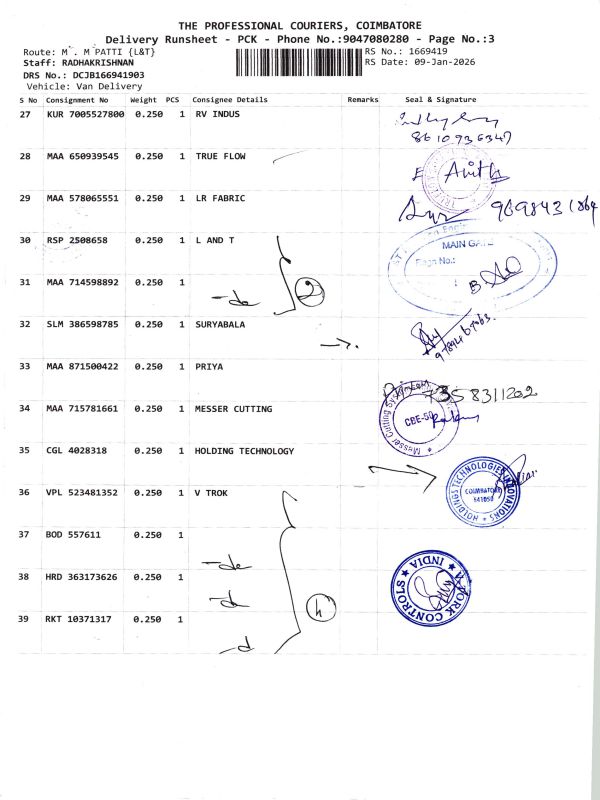 THE PROFESSIONAL COURIERS, COIMBATORE
Delivery Runsheet - PCK - Phone No.:9047080280 - Page No.:3
Route: M . M PATTI {L&T}
RS No.: 1669419
Staff: RADHAKRISHNAN
RS Date: 09-Jan-2026
DRS No.: DCJB166941903
Vehicle: Van Delivery
S No Consignment No Weight PCS Consignee Details Remarks Seal & Signature
27 KUR 7005527800 0.250 1 RV INDUS
8610936347
28 MAA 650939545 0.250 1 TRUE FLOW
29 MAA 578065551 0.250 1 LR FABRIC
9698431864
30 RSP 2508658 0.250 1 L AND T
MAIN GATE
Regn No.:
31 MAA 714598892 0.250 1
2
32 SLM 386598785 0.250 1 SURYABALA
33 MAA 871500422 0.250 1 PRIYA
7358311202
34 MAA 715781661 0.250 1 MESSER CUTTING
Messer Cutting Systems
CBE-50
35 CGL 4028318 0.250 1 HOLDING TECHNOLOGY
HOLDINGS TECHNOLOGIES INNOVATIONS
COIMBATORE
641050
36 VPL 523481352 0.250 1 V TROK
37 BOD 557611 0.250 1
38 HRD 363173626 0.250 1
39 RKT 10371317 0.250 1
CONTROLS INDIA